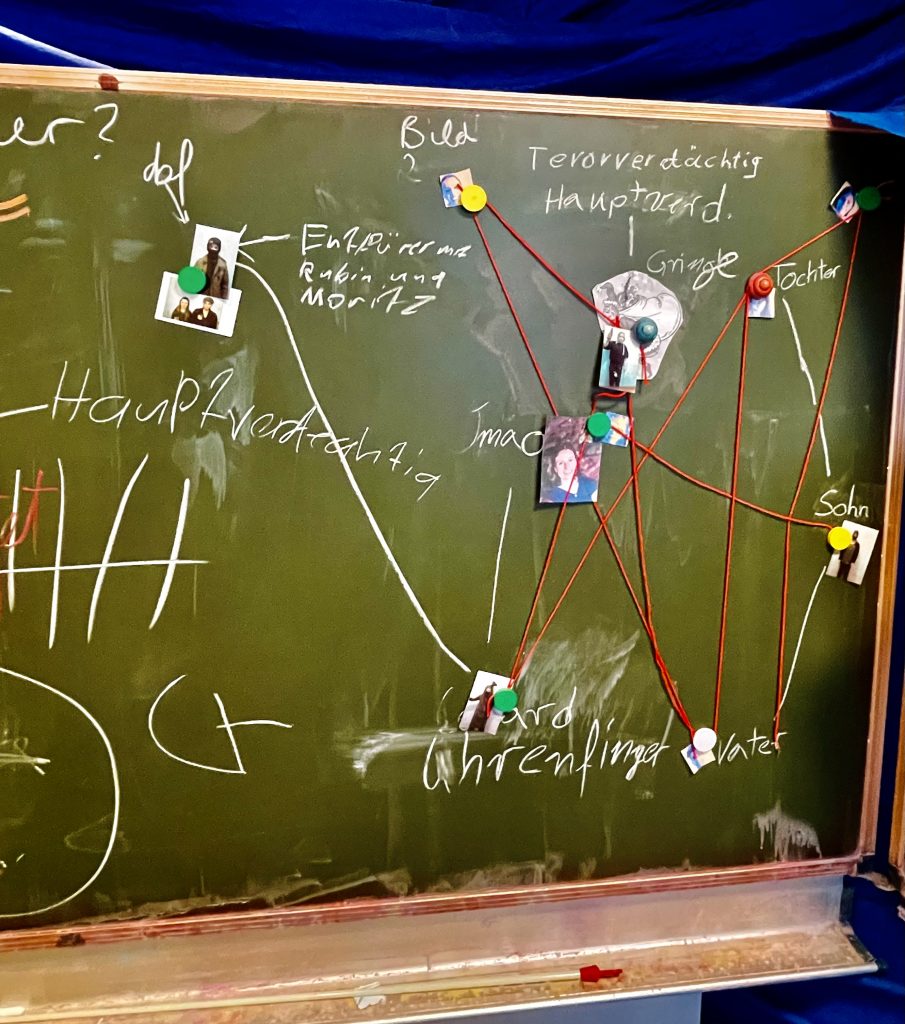 er?
Bild
?
dof
Terorverdächtig
Hauptverd.
Entfürer
Rubin und
Moritz
Gringe
Tochter
Hauptverdrahtig
Jmao
Sohn
Uhrenfinger
Vater